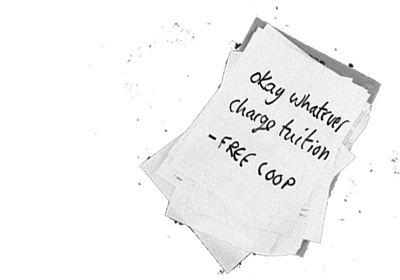 okay whatever
charge tuition
-FREE COOP